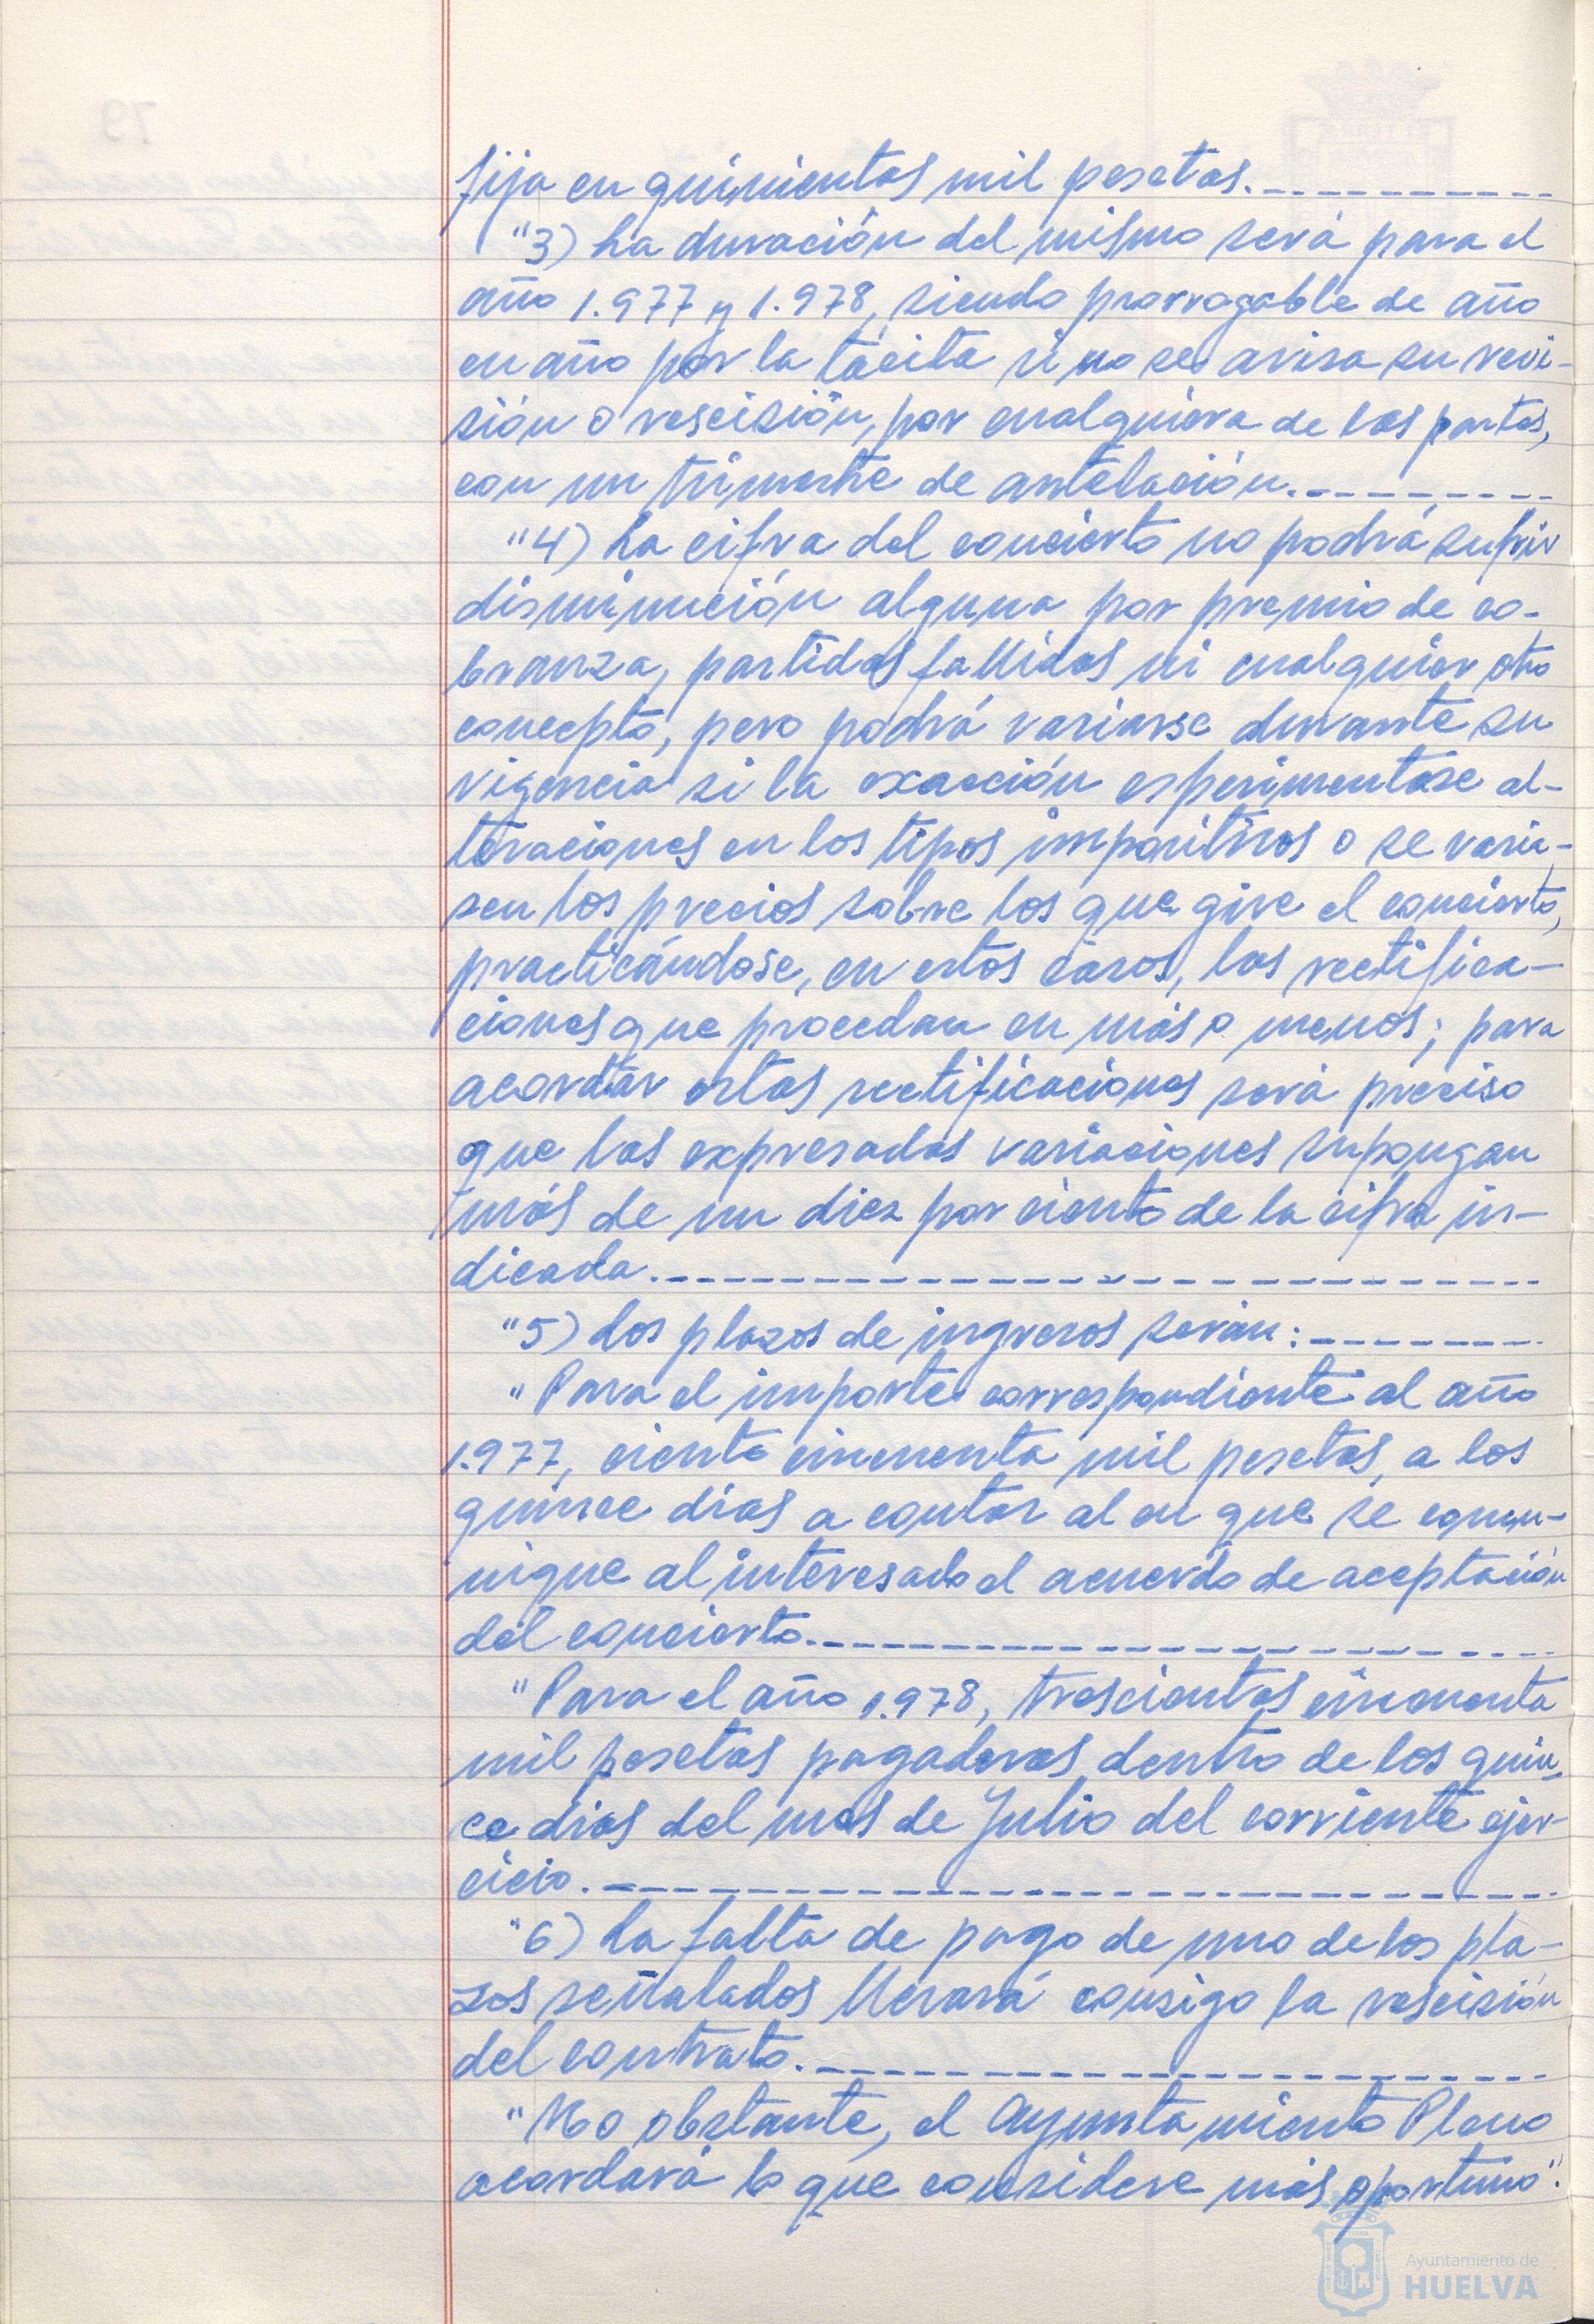 fija en quinientas mil pesetas.----------
"3) La duración del mismo será para el
año 1.977 y 1.978, siendo prorrogable de año
en año por la tácita si no se avisa su revi-
sión o rescisión, por cualquiera de las partes,
con un trimestre de antelación.---------
"4) La cifra del concierto no podrá sufrir
disminución alguna por premio de co-
branza, partidas fallidas ni cualquier otro
concepto, pero podrá variarse durante su
vigencia si la exacción esperimentase al-
teraciones en los tipos impositivos o se varia-
sen los precios sobre los que gire el concierto,
practicándose, en estos casos, las rectifica-
ciones que procedan en más o menos; para
acordar estas rectificaciones será preciso
que las expresadas variaciones supongan
más de un diez por ciento de la cifra in-
dicada.--------------------
"5) Los plazos de ingresos serán:--------
"Para el importe correspondiente al año
1.977, ciento cincuenta mil pesetas, a los
quince días a contar al en que se comu-
nique al interesado el acuerdo de aceptación
del concierto.------------------
"Para el año 1.978, trescientas cincuenta
mil pesetas pagaderas dentro de los quin-
ce días del mes de Julio del corriente ejer-
cicio.----------------------
"6) La falta de pago de uno de los pla-
zos señalados llevará consigo la rescisión
del contrato.------------------
"No obstante, el Ayuntamiento Pleno
acordará lo que considere más oportuno".
Ayuntamiento de
HUELVA